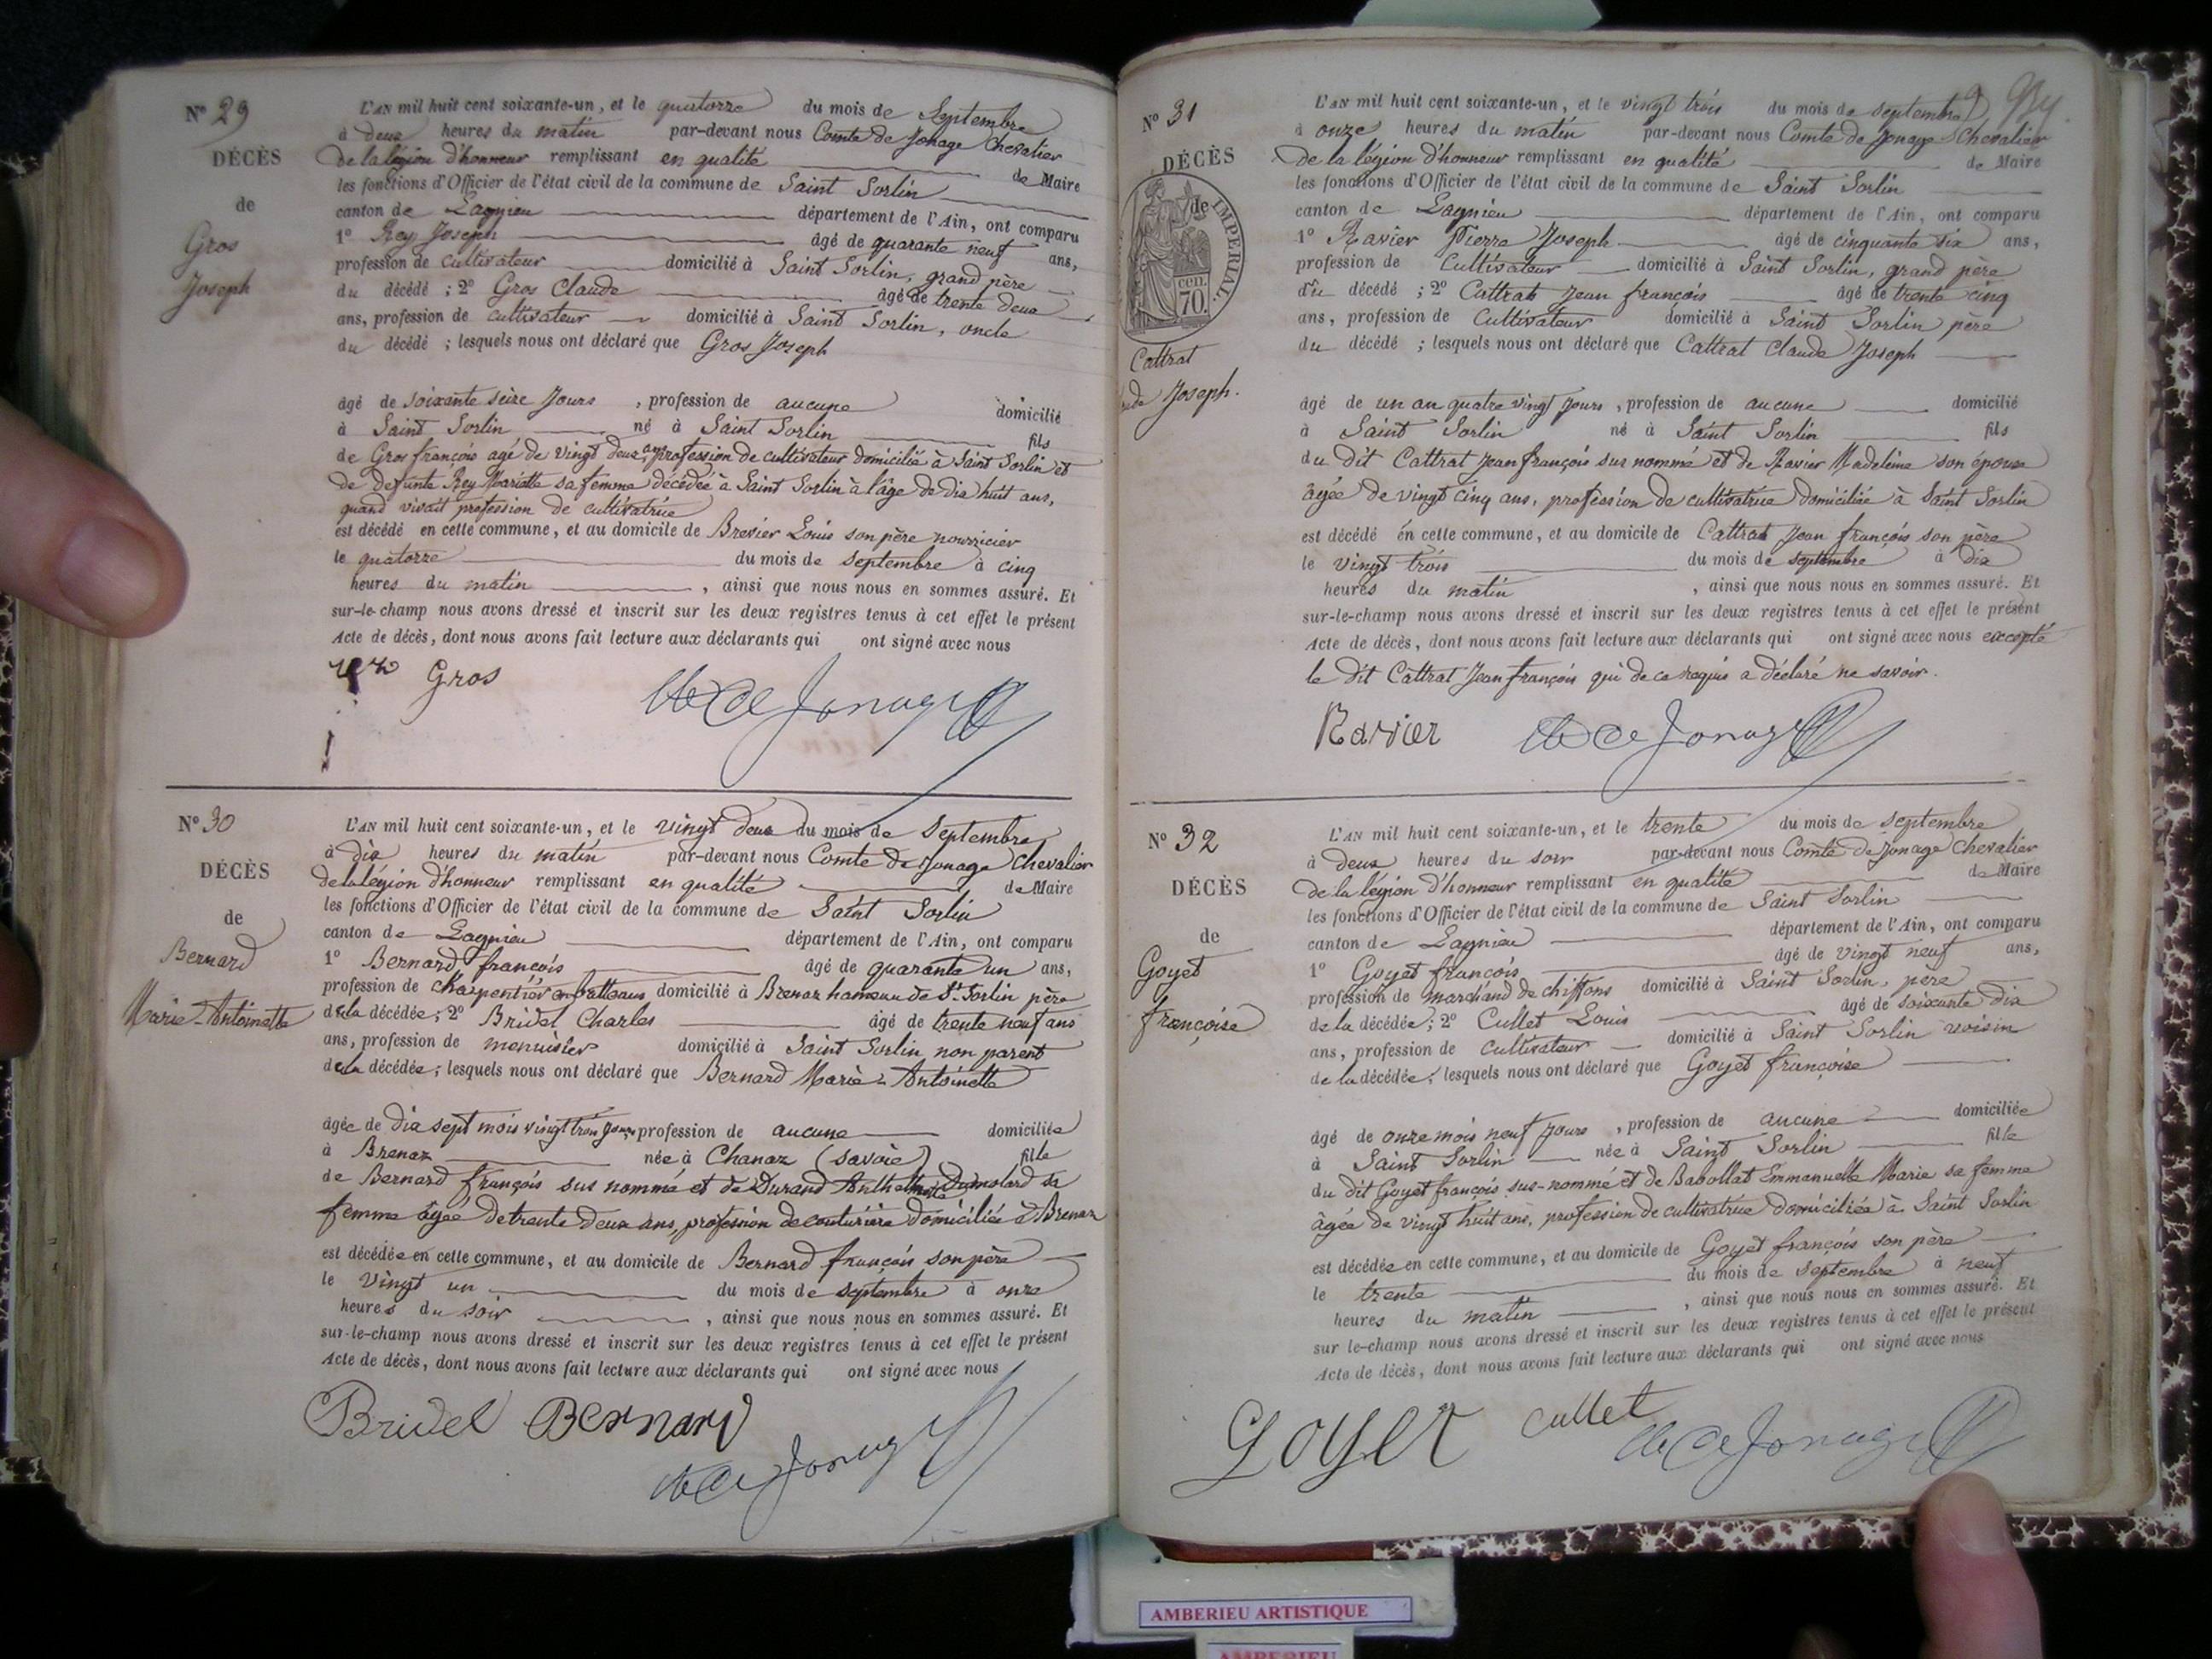 N° 29
DÉCÈS
de
Gros
Joseph
L'AN mil huit cent soixante-un, et le quatorze du mois de Septembre
à deux heures du matin par-devant nous Comte de Jonage Chevalier
de la légion d'honneur remplissant en qualité de Maire
les fonctions d'Officier de l'état civil de la commune de Saint Sorlin
canton de Lagnieu département de l'Ain, ont comparu
1° Rey Joseph âgé de quarante neuf ans,
profession de cultivateur domicilié à Saint Sorlin, grand père
du décédé ; 2° Gros Claude âgé de trente deux
ans, profession de cultivateur domicilié à Saint Sorlin, oncle
du décédé ; lesquels nous ont déclaré que Gros Joseph
âgé de soixante seize Jours , profession de aucune domicilié
à Saint Sorlin né à Saint Sorlin fils
de Gros françois agé de vingt deux ans profession de cultivateur domicilié à Saint Sorlin et
de defunte Rey Mariette sa femme décédée à Saint Sorlin à l'âge de dix huit ans,
quand vivait profession de cultivatrice
est décédé en cette commune, et au domicile de Brevier Louis son père nourricier
le quatorze du mois de septembre à cinq
heures du matin , ainsi que nous nous en sommes assuré. Et
sur-le-champ nous avons dressé et inscrit sur les deux registres tenus à cet effet le présent
Acte de décès, dont nous avons fait lecture aux déclarants qui ont signé avec nous
Gros
Cte de Jonage
N° 30
DÉCÈS
de
Bernard
Marie-Antoinette
L'AN mil huit cent soixante-un, et le vingt deux du mois de Septembre
à dix heures du matin par-devant nous Comte de Jonage Chevalier
de la légion d'honneur remplissant en qualité de Maire
les fonctions d'Officier de l'état civil de la commune de Saint Sorlin
canton de Lagnieu département de l'Ain, ont comparu
1° Bernard françois âgé de quarante un ans,
profession de charpentier en batteaux domicilié à Brenaz hameau de St Sorlin père
de la décédée ; 2° Bridel Charles âgé de trente neuf ans
ans, profession de menuisier domicilié à Saint Sorlin non parent
de la décédée ; lesquels nous ont déclaré que Bernard Marie-Antoinette
âgée de dix sept mois vingt trois jours profession de aucune domiciliée
à Brenaz née à Chanaz (Savoie) fille
de Bernard françois sus nommé et de Durand Dumolard sa
femme âgée de trente deux ans, profession de couturière domiciliée à Brenaz
est décédée en cette commune, et au domicile de Bernard françois son père
le vingt un du mois de septembre à onze
heures du soir , ainsi que nous nous en sommes assuré. Et
sur-le-champ nous avons dressé et inscrit sur les deux registres tenus à cet effet le présent
Acte de décès, dont nous avons fait lecture aux déclarants qui ont signé avec nous
Bridel Bernard
Cte de Jonage
N° 31
DÉCÈS
de
IMPERIAL.
cen.
70.
Cattrat
Joseph.
L'AN mil huit cent soixante-un, et le vingt trois du mois de septembre
à onze heures du matin par-devant nous Comte de Jonage Chevalier
de la légion d'honneur remplissant en qualité de Maire
les fonctions d'Officier de l'état civil de la commune de Saint Sorlin
canton de Lagnieu département de l'Ain, ont comparu
1° Ravier Pierre Joseph âgé de cinquante six ans,
profession de Cultivateur domicilié à Saint Sorlin, grand père
du décédé ; 2° Cattrat Jean françois âgé de trente cinq
ans, profession de Cultivateur domicilié à Saint Sorlin père
du décédé ; lesquels nous ont déclaré que Cattrat Claude Joseph
âgé de un an quatre vingt jours , profession de aucune domicilié
à Saint Sorlin né à Saint Sorlin fils
du dit Cattrat Jean françois sus nommé et de Ravier Madeleine son épouse
âgée de vingt cinq ans, profession de cultivatrice domiciliée à Saint Sorlin
est décédé en cette commune, et au domicile de Cattrat Jean françois son père
le vingt trois du mois de septembre à dix
heures du matin , ainsi que nous nous en sommes assuré. Et
sur-le-champ nous avons dressé et inscrit sur les deux registres tenus à cet effet le présent
Acte de décès, dont nous avons fait lecture aux déclarants qui ont signé avec nous excepté
le dit Cattrat Jean françois qui de ce requis a déclaré ne savoir.
Ravier Cte de Jonage
N° 32
DÉCÈS
de
Goyet
françoise
L'AN mil huit cent soixante-un, et le trente du mois de septembre
à deux heures du soir par-devant nous Comte de Jonage Chevalier
de la légion d'honneur remplissant en qualité de Maire
les fonctions d'Officier de l'état civil de la commune de Saint Sorlin
canton de Lagnieu département de l'Ain, ont comparu
1° Goyet françois âgé de vingt neuf ans,
profession de marchand de chiffons domicilié à Saint Sorlin, père
de la décédée ; 2° Cullet Louis âgé de soixante dix
ans, profession de Cultivateur domicilié à Saint Sorlin voisin
de la décédée ; lesquels nous ont déclaré que Goyet françoise
âgé de onze mois neuf jours , profession de aucune domiciliée
à Saint Sorlin née à Saint Sorlin fille
du dit Goyet françois sus-nommé et de Babollat Emmanuelle Marie sa femme
âgée de vingt huit ans, profession de cultivatrice domiciliée à Saint Sorlin
est décédée en cette commune, et au domicile de Goyet françois son père
le trente du mois de septembre à neuf
heures du matin , ainsi que nous nous en sommes assuré. Et
sur le-champ nous avons dressé et inscrit sur les deux registres tenus à cet effet le présent
Acte de décès, dont nous avons fait lecture aux déclarants qui ont signé avec nous
Goyet Cullet Cte de Jonage
AMBERIEU ARTISTIQUE
AMBERIEU